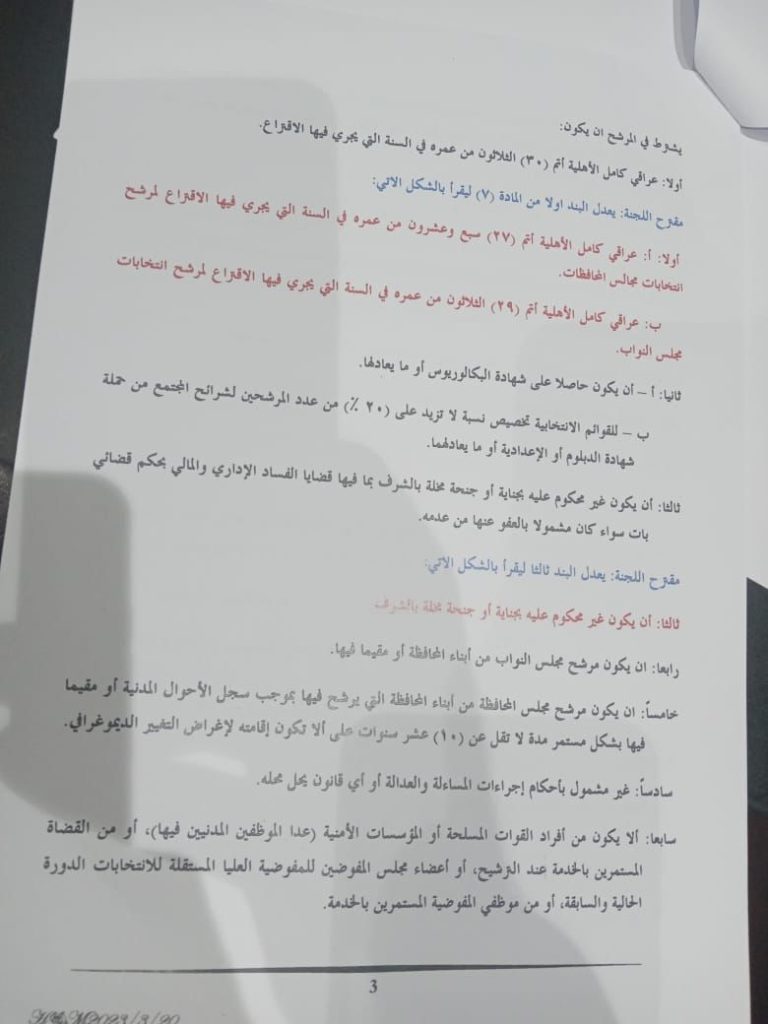 يشترط في المرشح ان يكون:
أولا: عراقي كامل الأهلية أتم (٣٠) الثلاثون من عمره في السنة التي يجري فيها الاقتراع.
مقترح اللجنة: يعدل البند اولا من المادة (٧) ليقرأ بالشكل الاتي:
أولا: أ: عراقي كامل الأهلية أتم (٢٧) سبع وعشرون من عمره في السنة التي يجري فيها الاقتراع لمرشح
انتخابات مجالس المحافظات.
ب: عراقي كامل الأهلية أتم (٢٩) الثلاثون من عمره في السنة التي يجري فيها الاقتراع لمرشح انتخابات
مجلس النواب.
ثانيا: أ – أن يكون حاصلا على شهادة البكالوريوس أو ما يعادلها.
ب – للقوائم الانتخابية تخصيص نسبة لا تزيد على (٢٠ ٪) من عدد المرشحين لشرائح المجتمع من حملة
شهادة الدبلوم أو الإعدادية أو ما يعادلهما.
ثالثا: أن يكون غير محكوم عليه بجناية أو جنحة مخلة بالشرف بما فيها قضايا الفساد الإداري والمالي بحكم قضائي
بات سواء كان مشمولا بالعفو عنها من عدمه.
مقترح اللجنة: يعدل البند ثالثا ليقرأ بالشكل الاتي:
ثالثا: أن يكون غير محكوم عليه بجناية أو جنحة مخلة بالشرف
رابعا: ان يكون مرشح مجلس النواب من أبناء المحافظة أو مقيما فيها.
خامساً: ان يكون مرشح مجلس المحافظة من أبناء المحافظة التي يرشح فيها بموجب سجل الأحوال المدنية أو مقيما
فيها بشكل مستمر مدة لا تقل عن (١٠) عشر سنوات على ألا تكون إقامته لإغراض التغيير الديموغرافي.
سادساً: غير مشمول بأحكام إجراءات المساءلة والعدالة أو أي قانون يحل محله.
سابعا: ألا يكون من أفراد القوات المسلحة أو المؤسسات الأمنية (عدا الموظفين المدنيين فيها)، أو من القضاة
المستمرين بالخدمة عند الترشيح، أو أعضاء مجلس المفوضين للمفوضية العليا المستقلة للانتخابات الدورة
الحالية والسابقة، أو من موظفي المفوضية المستمرين بالخدمة.
3
2023/3/20